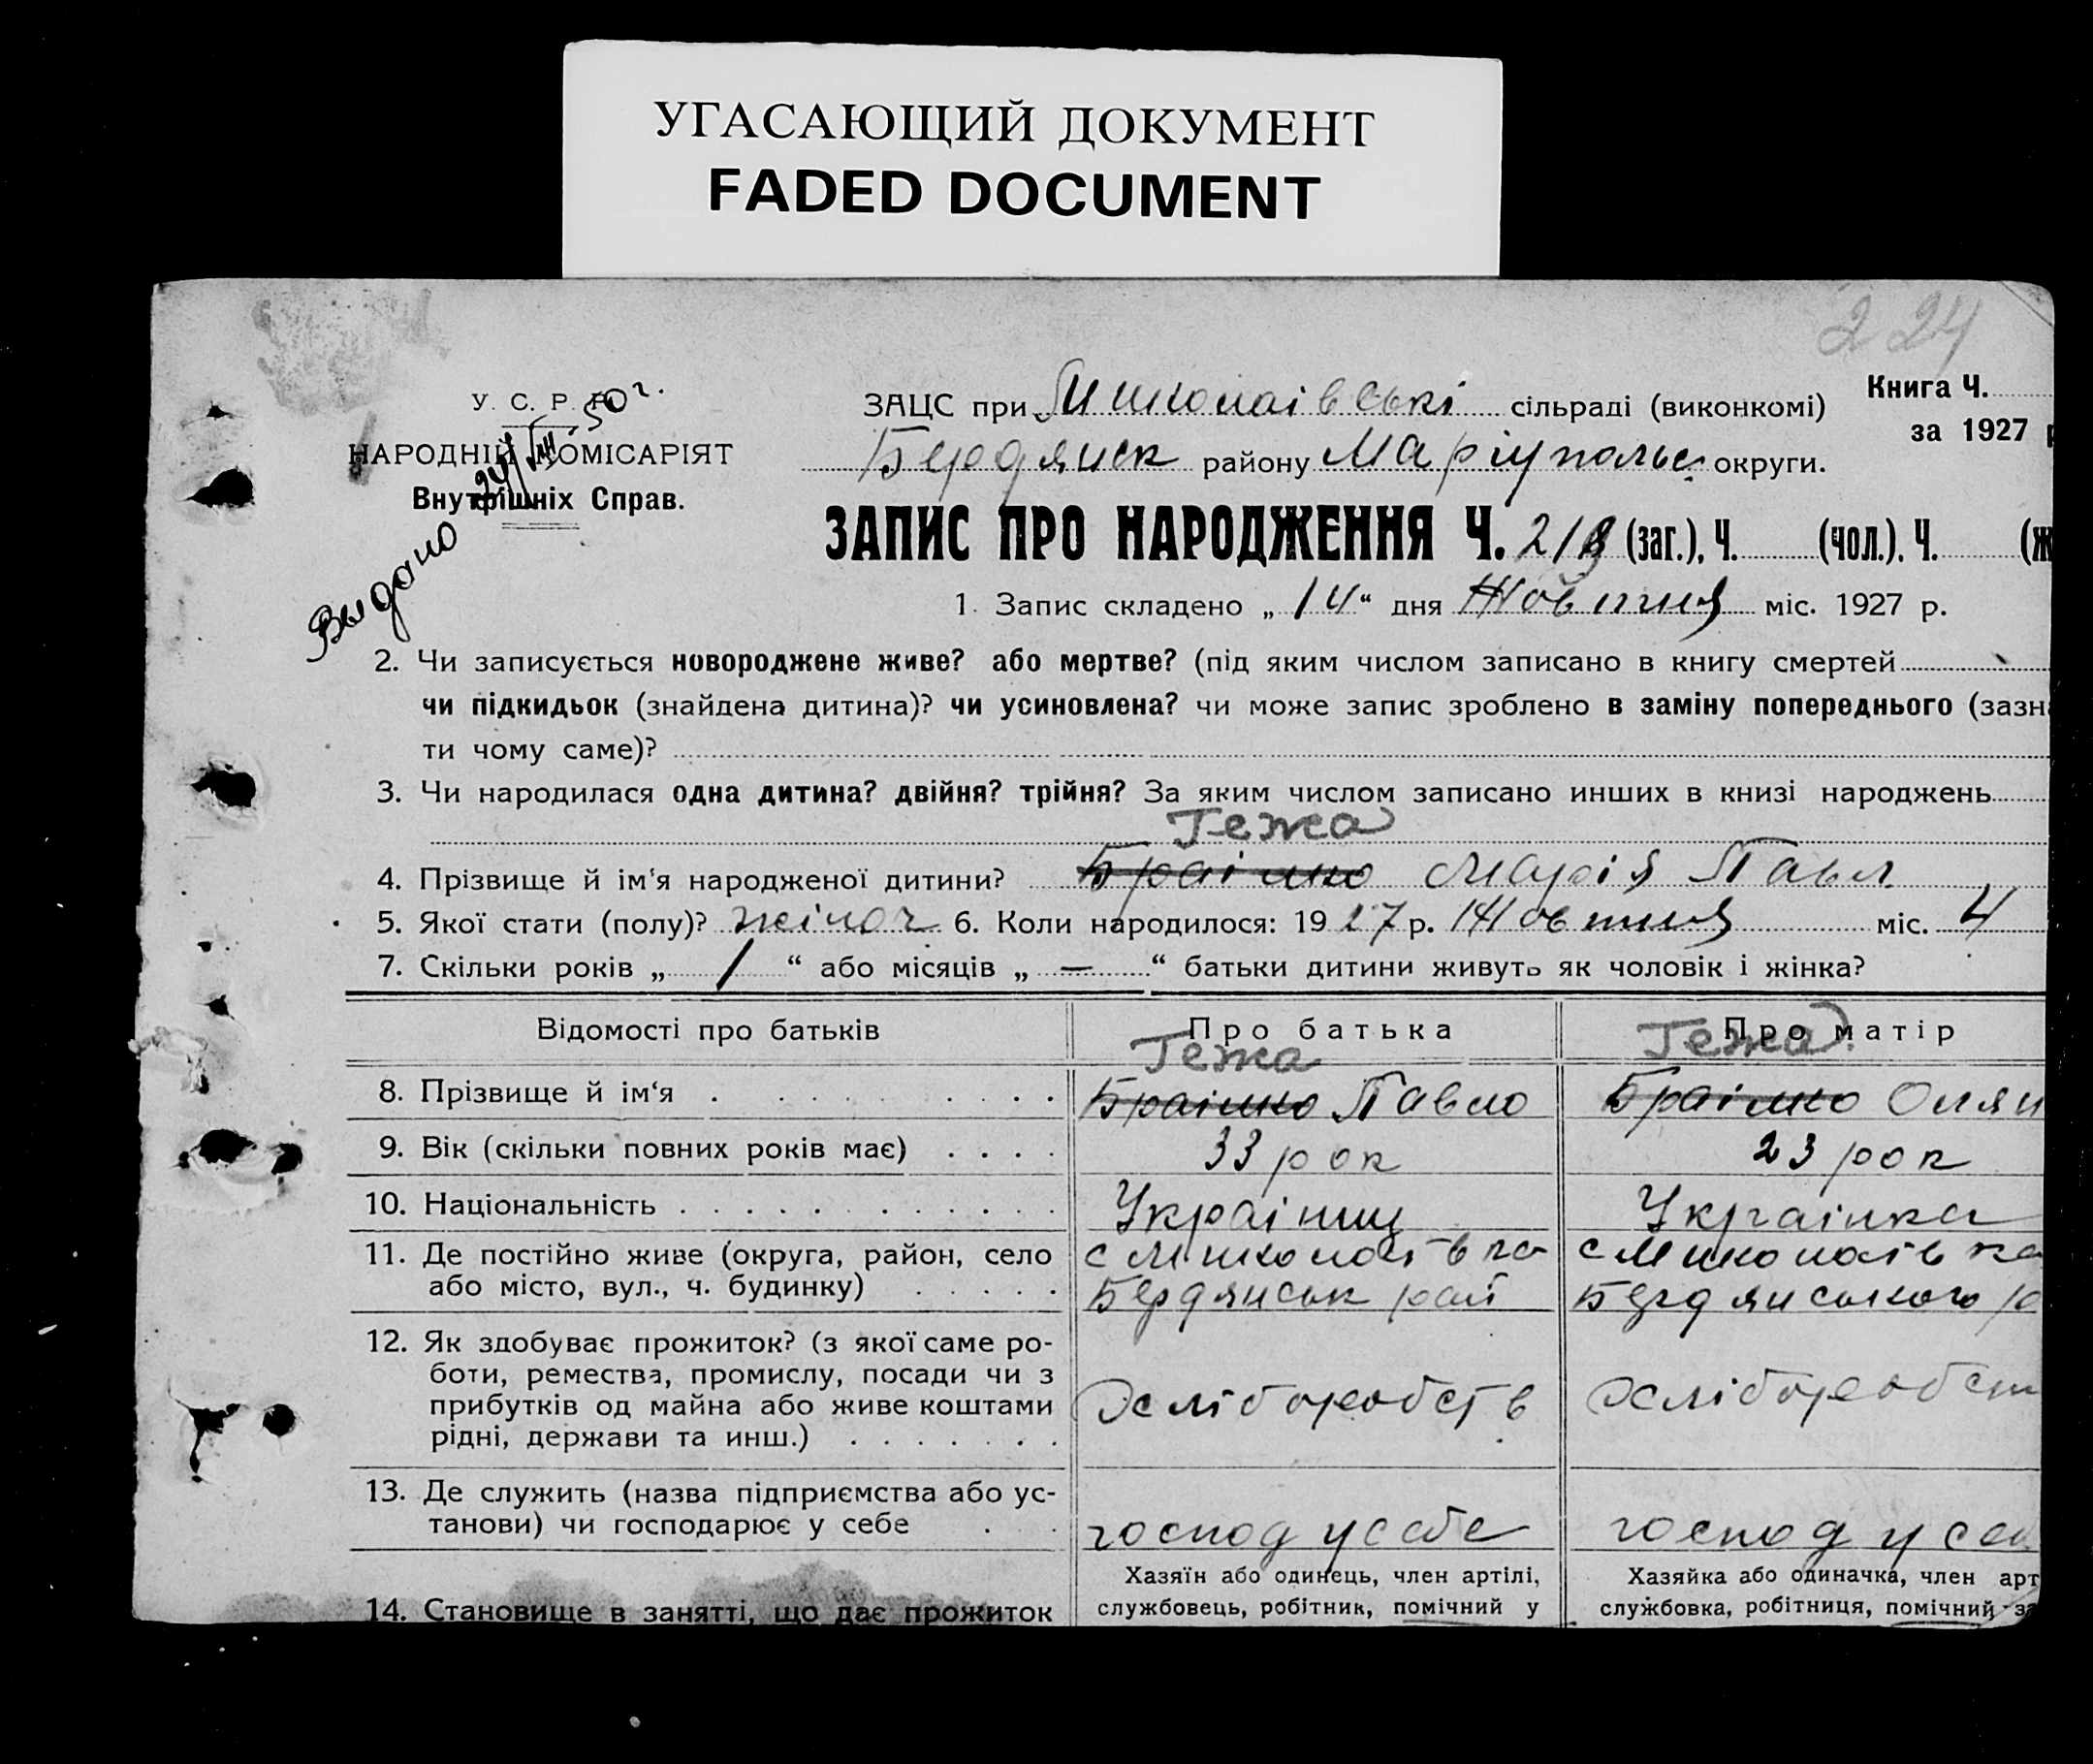 УГАСАЮЩИЙ ДОКУМЕНТ
FADED DOCUMENT
224
У. С. Р. Р.
НАРОДНІЙ КОМІСАРІЯТ
Внутрішніх Справ.
Выдано 24/VIII 50 г.
ЗАЦС при Миколаівські сільраді (виконкомі)
Бердянск району Маріупольс округи.
Книга Ч.
за 1927 р
ЗАПИС ПРО НАРОДЖЕННЯ Ч. 218 (заг.), Ч. (чол.), Ч. (ж
1. Запис складено „ 14 “ дня Жовтня міс. 1927 р.
2. Чи записується новороджене живе? або мертве? (під яким числом записано в книгу смертей
чи підкидьок (знайдена дитина)? чи усиновлена? чи може запис зроблено в заміну попереднього (зазна
ти чому саме)?
3. Чи народилася одна дитина? двійня? трійня? За яким числом записано инших в книзі народжень
Гежа
4. Прізвище й ім'я народженої дитини? Браімко Марія Павл.
5. Якої стати (полу)? жіноч 6. Коли народилося: 1927 р. Жовтня міс. 4
7. Скільки років „ 1 “ або місяців „ — “ батьки дитини живуть як чоловік і жінка?
Відомості про батьків Про батька Про матір
Гежа Гежа
8. Прізвище й ім‘я Браімко Павло Браімко Олян
9. Вік (скільки повних років має) 33 рок 23 рок
10. Національність Украінц Украінка
11. Де постійно живе (округа, район, село с Миколаівка с Миколаівка
або місто, вул., ч. будинку) Бердянськ рай Бердянського р
12. Як здобуває прожиток? (з якої саме ро-
боти, ремества, промислу, посади чи з
прибутків од майна або живе коштами хліборобств хліборобст
рідні, держави та инш.)
13. Де служить (назва підприємства або ус-
танови) чи господарює у себе господ у себе господ у себ
Хазяїн або одинець, член артілі, Хазяйка або одиначка, член арт
14. Становище в занятті, що дає прожиток службовець, робітник, помічний у службовка, робітниця, помічний за